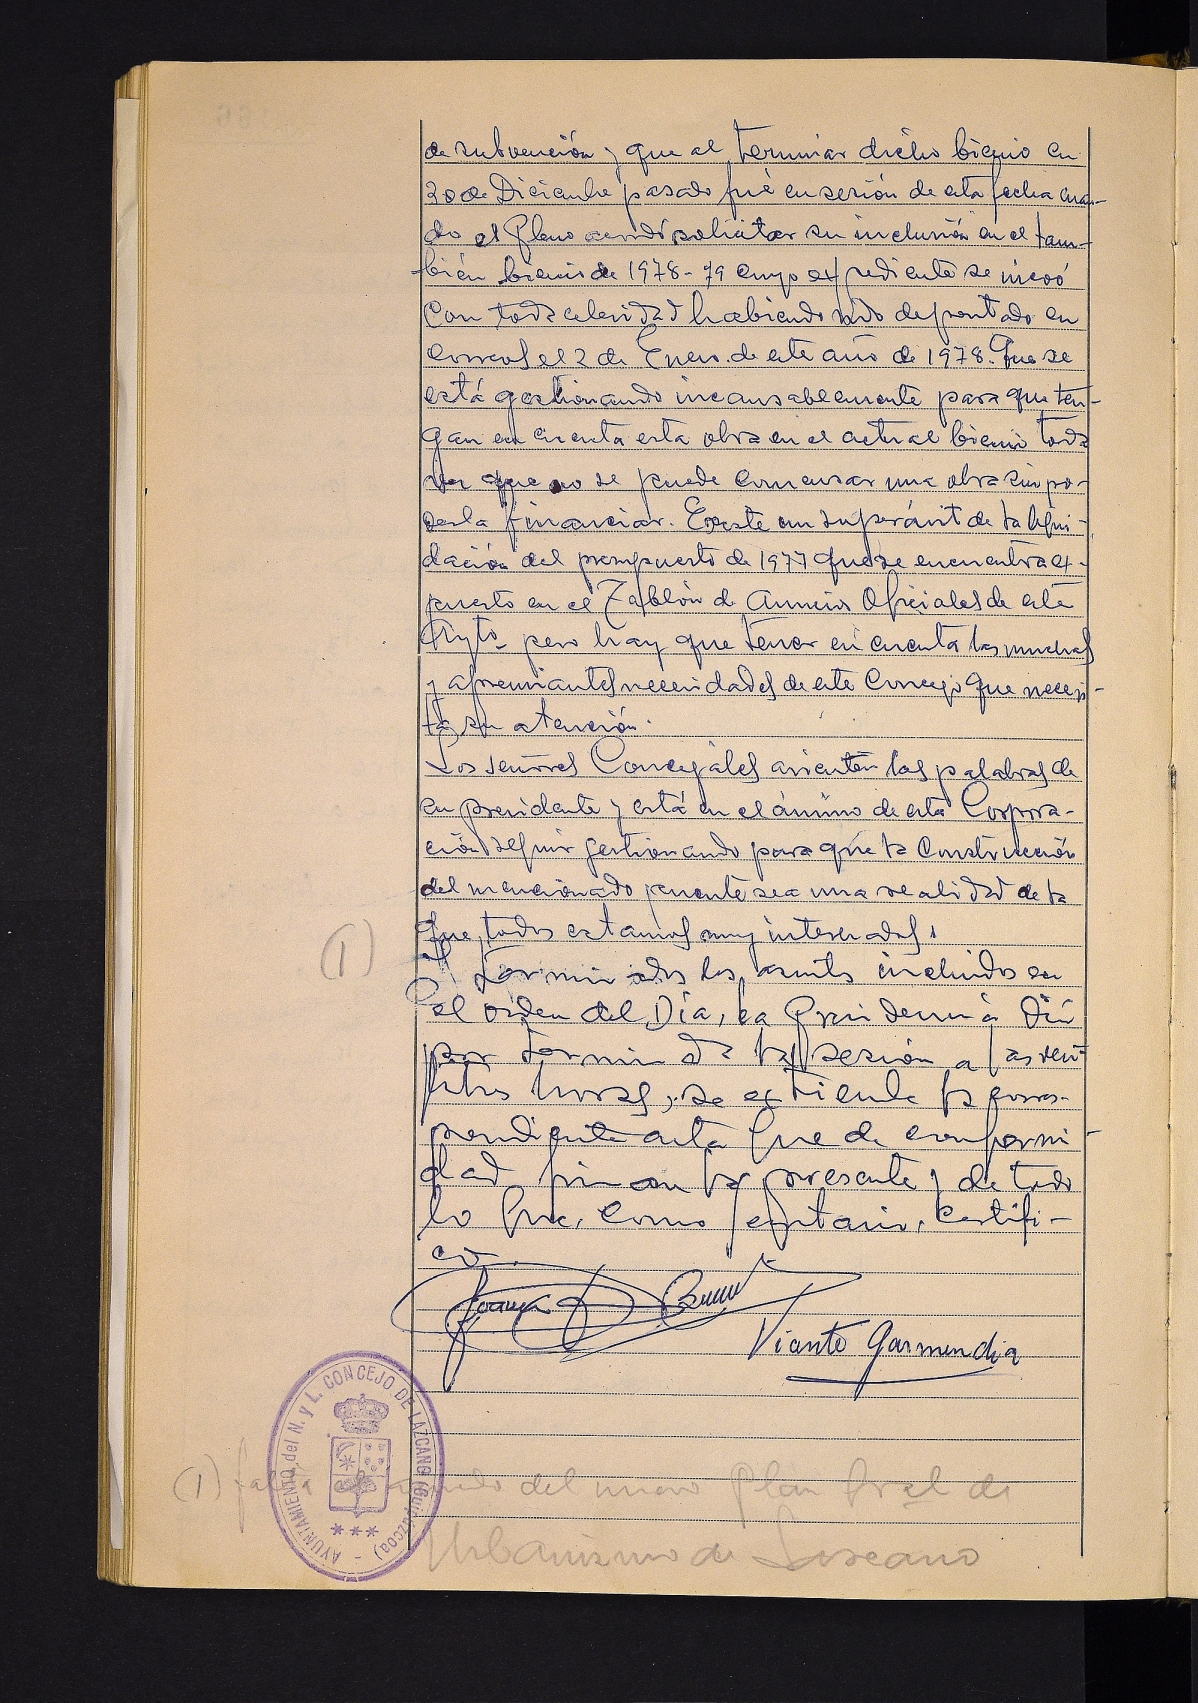 de subvención y que al terminar dicho bienio en
30 de Diciembre pasado fué en sesión de esta fecha cuan-
do el Pleno acordó solicitar su inclusión en el tam-
bién bienio de 1978-79 cuyo expediente se incoó
con toda celeridad habiendo sido depositado en
correos el 2 de Enero de este año de 1978. Que se
está gestionando incansablemente para que ten-
gan en cuenta esta obra en el actual bienio toda
vez que no se puede comenzar una obra sin po-
derla financiar. Existe un superávit de la liqui-
dación del presupuesto de 1977 que se encuentra ex-
puesto en el Tablón de Anuncios Oficiales de este
Ayto. pero hay que tener en cuenta las muchas
y apremiantes necesidades de este Concejo que necesi-
ta su atención.
Los señores Concejales asienten las palabras de
su presidente y está en el ánimo de esta Corpora-
ción seguir gestionando para que la construcción
del mencionado puente sea una realidad de la
que todos estamos muy interesados.
(1)
Terminados los asuntos incluidos en
el orden del Día, la Presidencia dió
por terminada la sesión a las vein-
titrés horas, se extiende la corres-
pondiente acta que de conformi-
dad firman la presente y de todo
lo que, como Secretario, certifi-
co.
Vicente Garmendia
AYUNTAMIENTO del N. y L. CONCEJO DE LAZCANO (Guipúzcoa)
(1) falta el acuerdo del nuevo Plan Gral de
Urbanismo de Lazcano